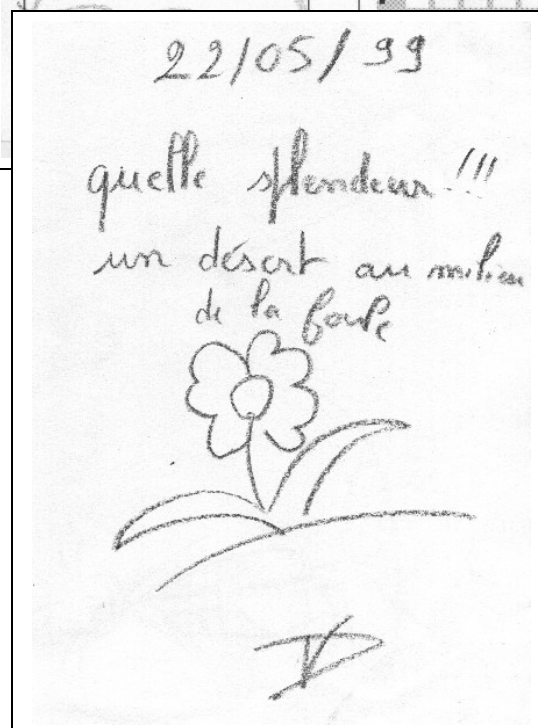 22/05/99
quelle splendeur !!!
un désert au milieu
de la foule